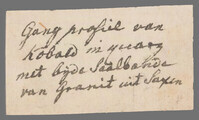 Gang profiel van
Kobald in
met byde Saalbande
van Granit uit Saxen